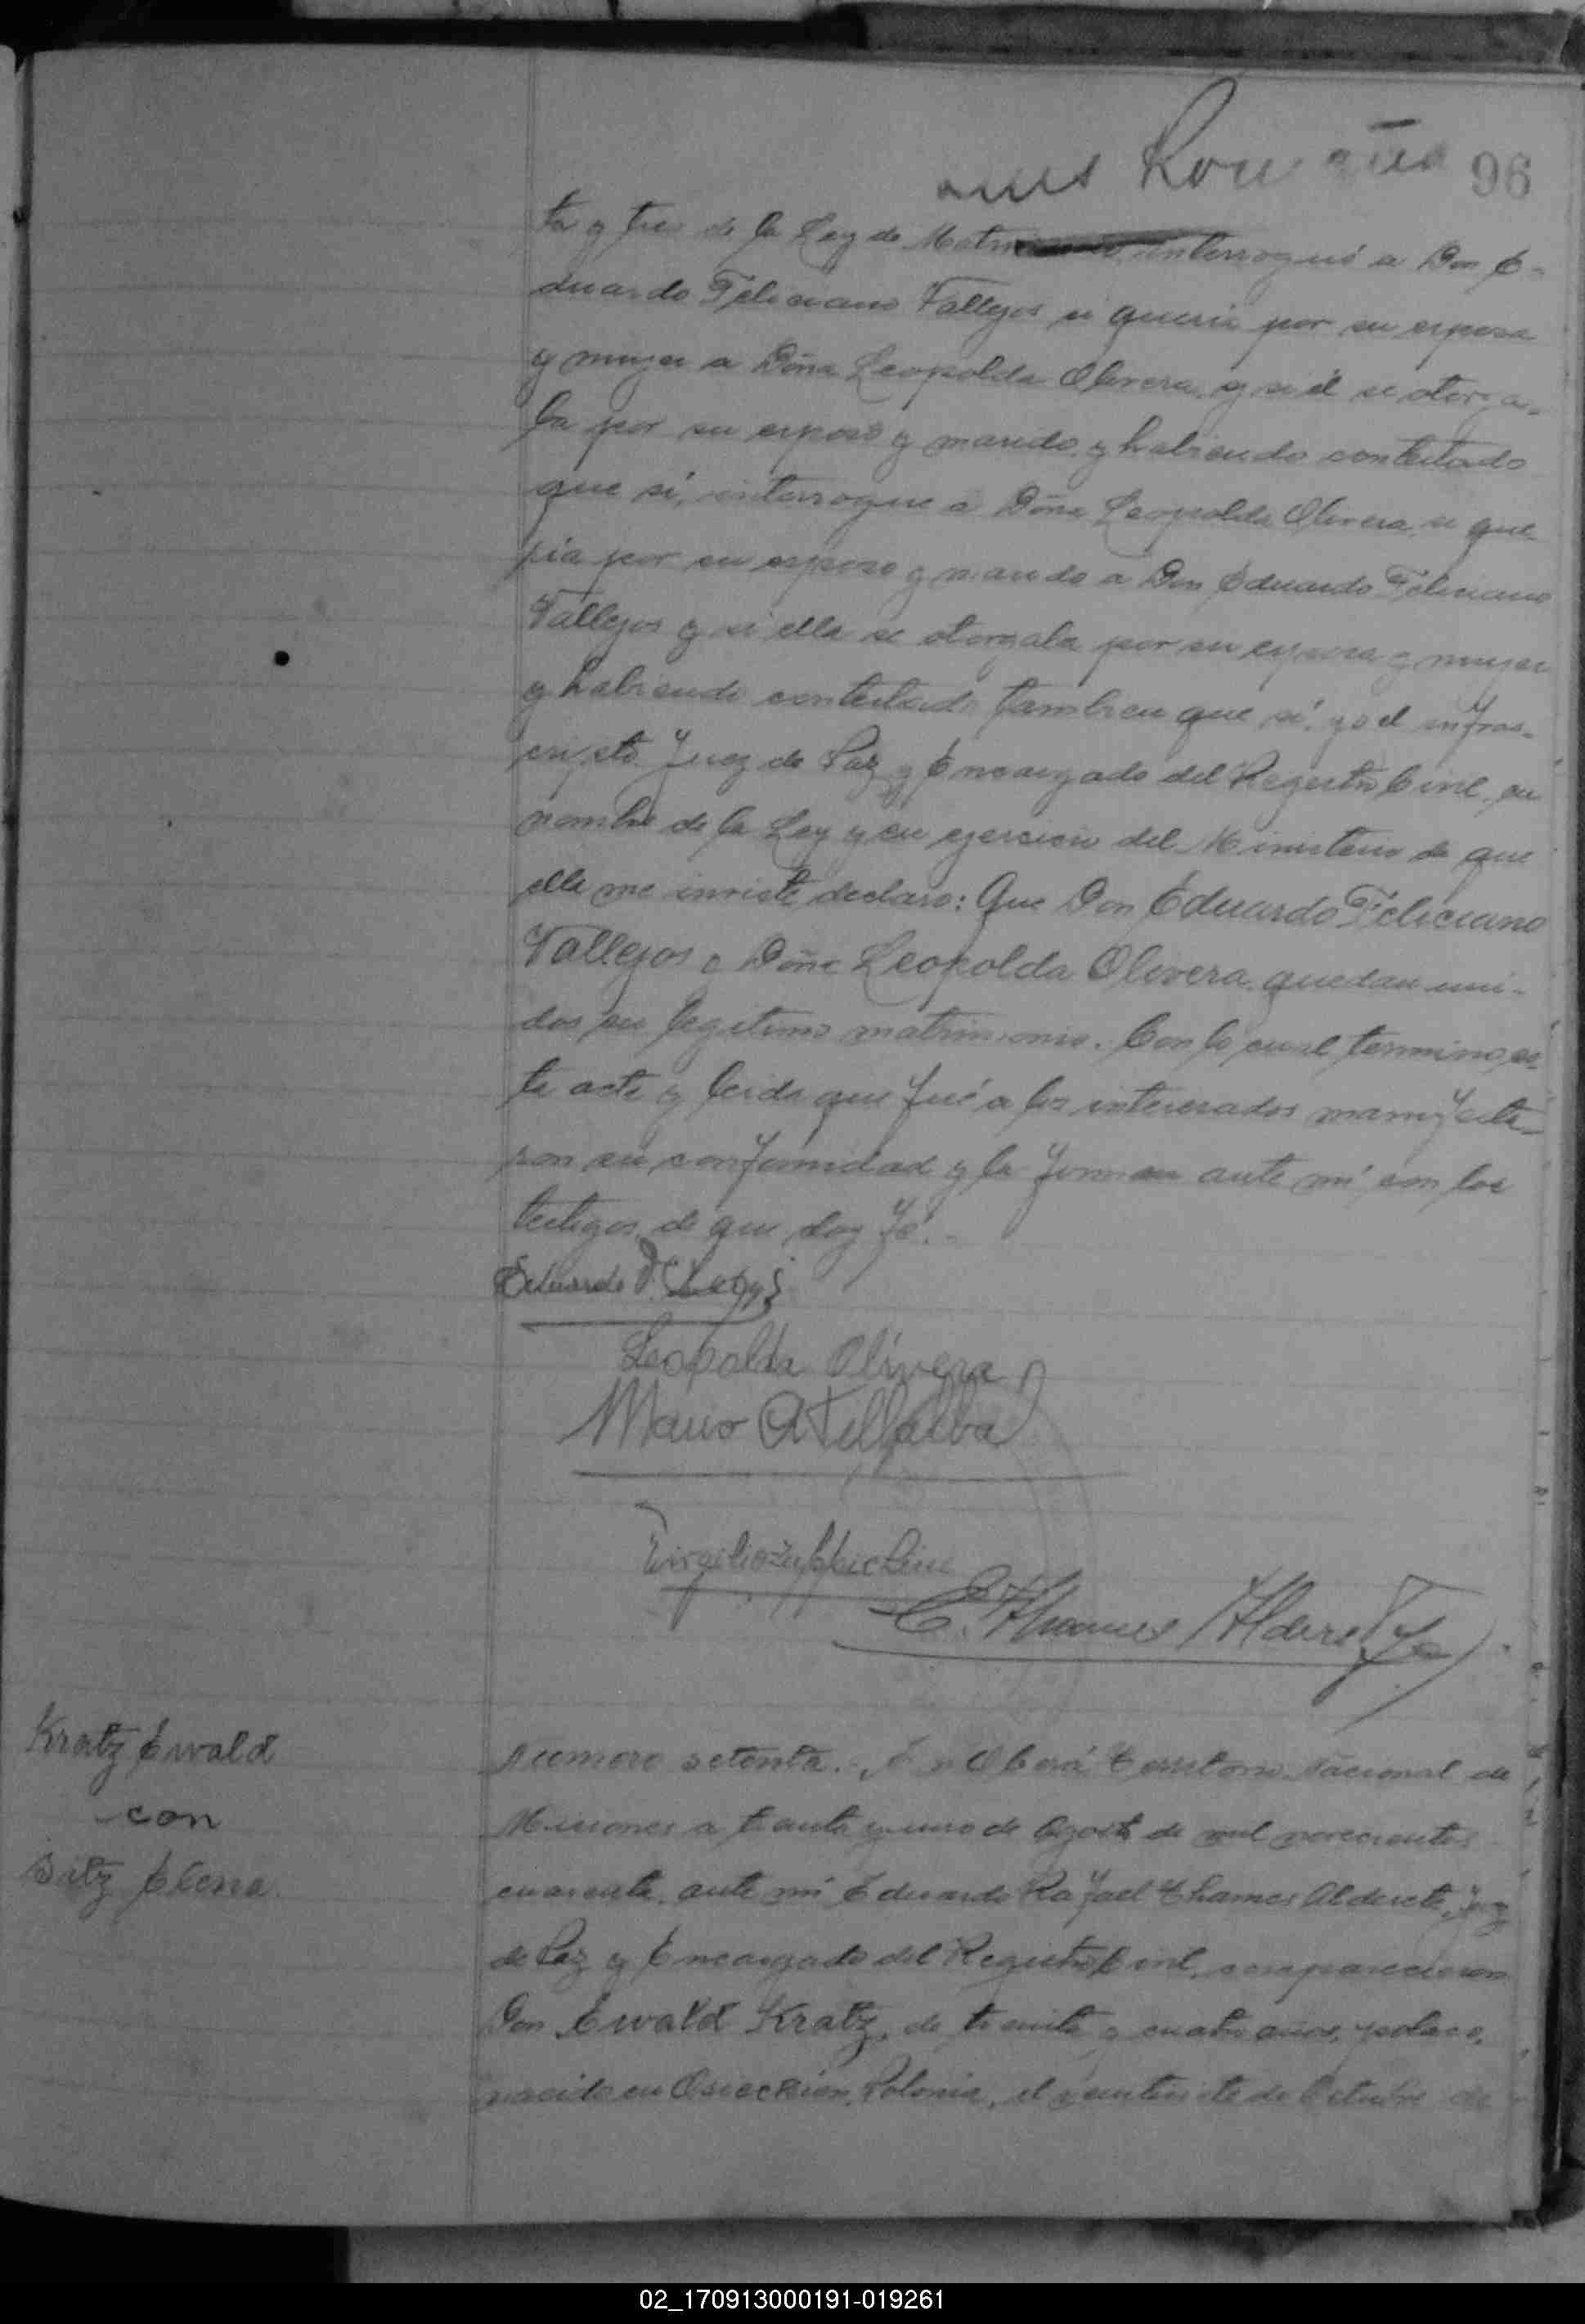 96
ta y tres de la Ley de Matrimonio, interrogué a Don E-
duardo Feliciano Vallejos si queria por su esposa
y mujer a Doña Leopolda Olivera, y si él se otorga-
ba por su esposo y marido, y habiendo contestado
que sí, interrogue a Doña Leopolda Olivera, si que
ria por su esposo y marido a Don Eduardo Feliciano
Vallejos y si ella se otorgaba por su esposa y mujer
y habiendo contestado tambien que sí, yo el infras-
cripto Juez de Paz y Encargado del Registro Civil, en
nombre de la Ley y en ejercicio del Ministerio de que
ella me inviste declaro: Que Don Eduardo Feliciano
Vallejos y Doña Leopolda Olivera, quedan uni-
dos en legitimo matrimonio. Con lo cual termino es-
ta acta y leida que fué a los interesados manifesta-
ron su conformidad y la firman ante mí con los
testigos, de que doy fé.-
Eduardo
Leopolda Olivera
Mario A Villalba
Virgilio
E. Thames Alderete
Kratz Ewald
con
Batz Elena.
Numero setenta.- En Oberá Territorio Nacional de
Misiones a treinta y uno de Agosto de mil novecientos
cuarenta, ante mí Eduardo Rafael Thames Alderete, Juez
de Paz y Encargado del Registro Civil, comparecieron
Don Ewald Kratz, de treinta y cuatro años, polaco,
nacido en Polonia, el veintisiete de Octubre de
02_170913000191-019261